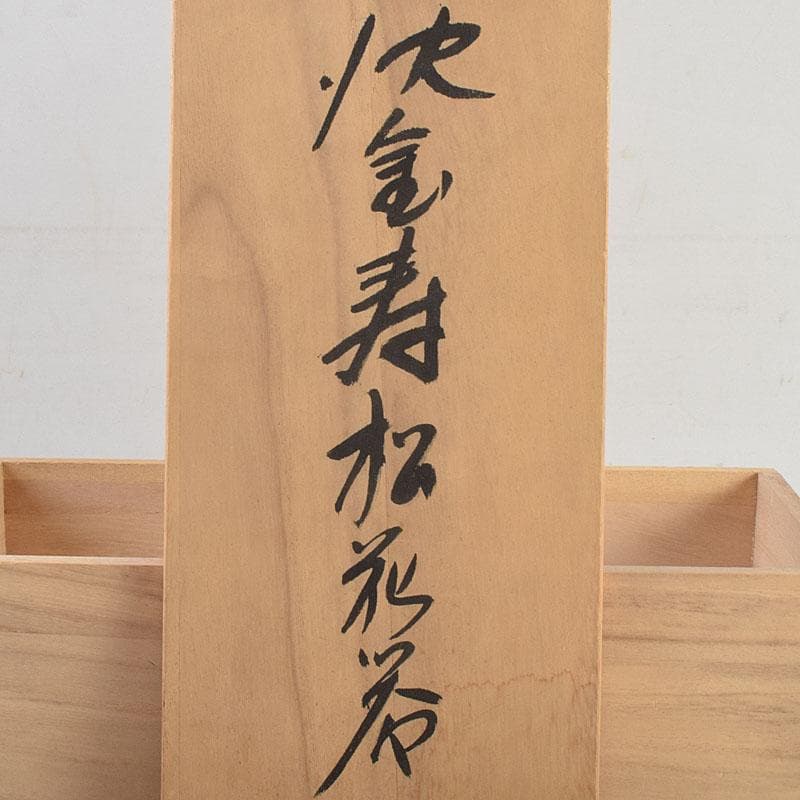 沈金寿松花器